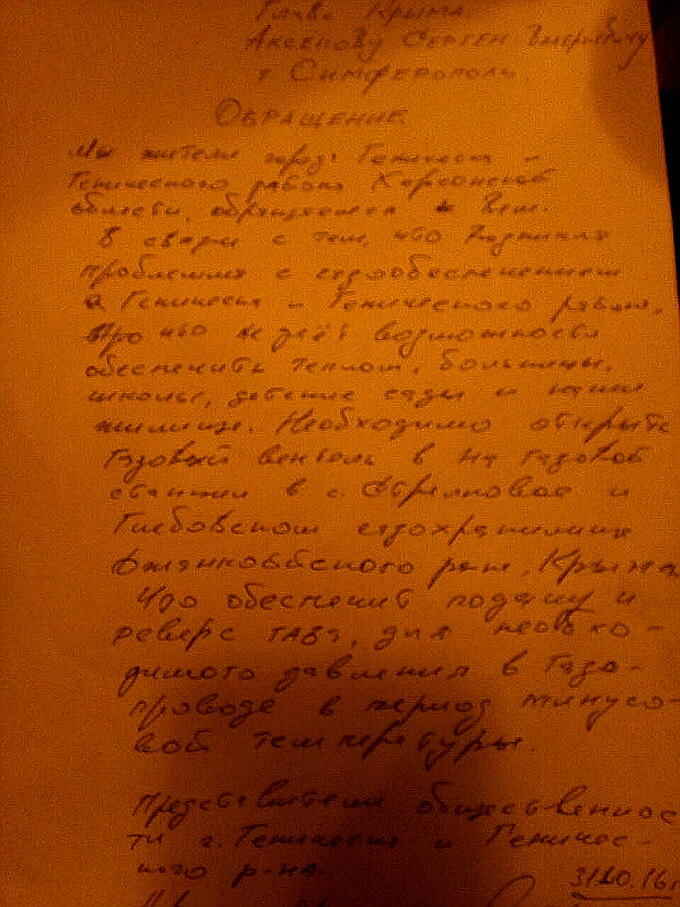 Главе Крыма
Аксенову Сергею Валерьевичу
г. Симферополь
ОБРАЩЕНИЕ
Мы жители города Геническа и
Генического района Херсонской
области, обращаемся к Вам.
В связи с тем, что возникла
проблемма с газообеспечением
г. Геническа и Генического района,
что не даёт возможности
обеспечить теплом, больницы,
школы, детские сады и наши
жилища. Необходимо открыть
газовый вентель в на газовой
станции в с. Стрелковое и
Глебовском газохранилище
Джанкойского р-на, Крыма
Что обеспечит подачу и
реверс газа, для необхо-
димого давления в газо-
проводе в период минусо-
вой температуры.
Представители общественнос-
ти г. Геническа и Геничес-
кого р-на.
31.10.16г